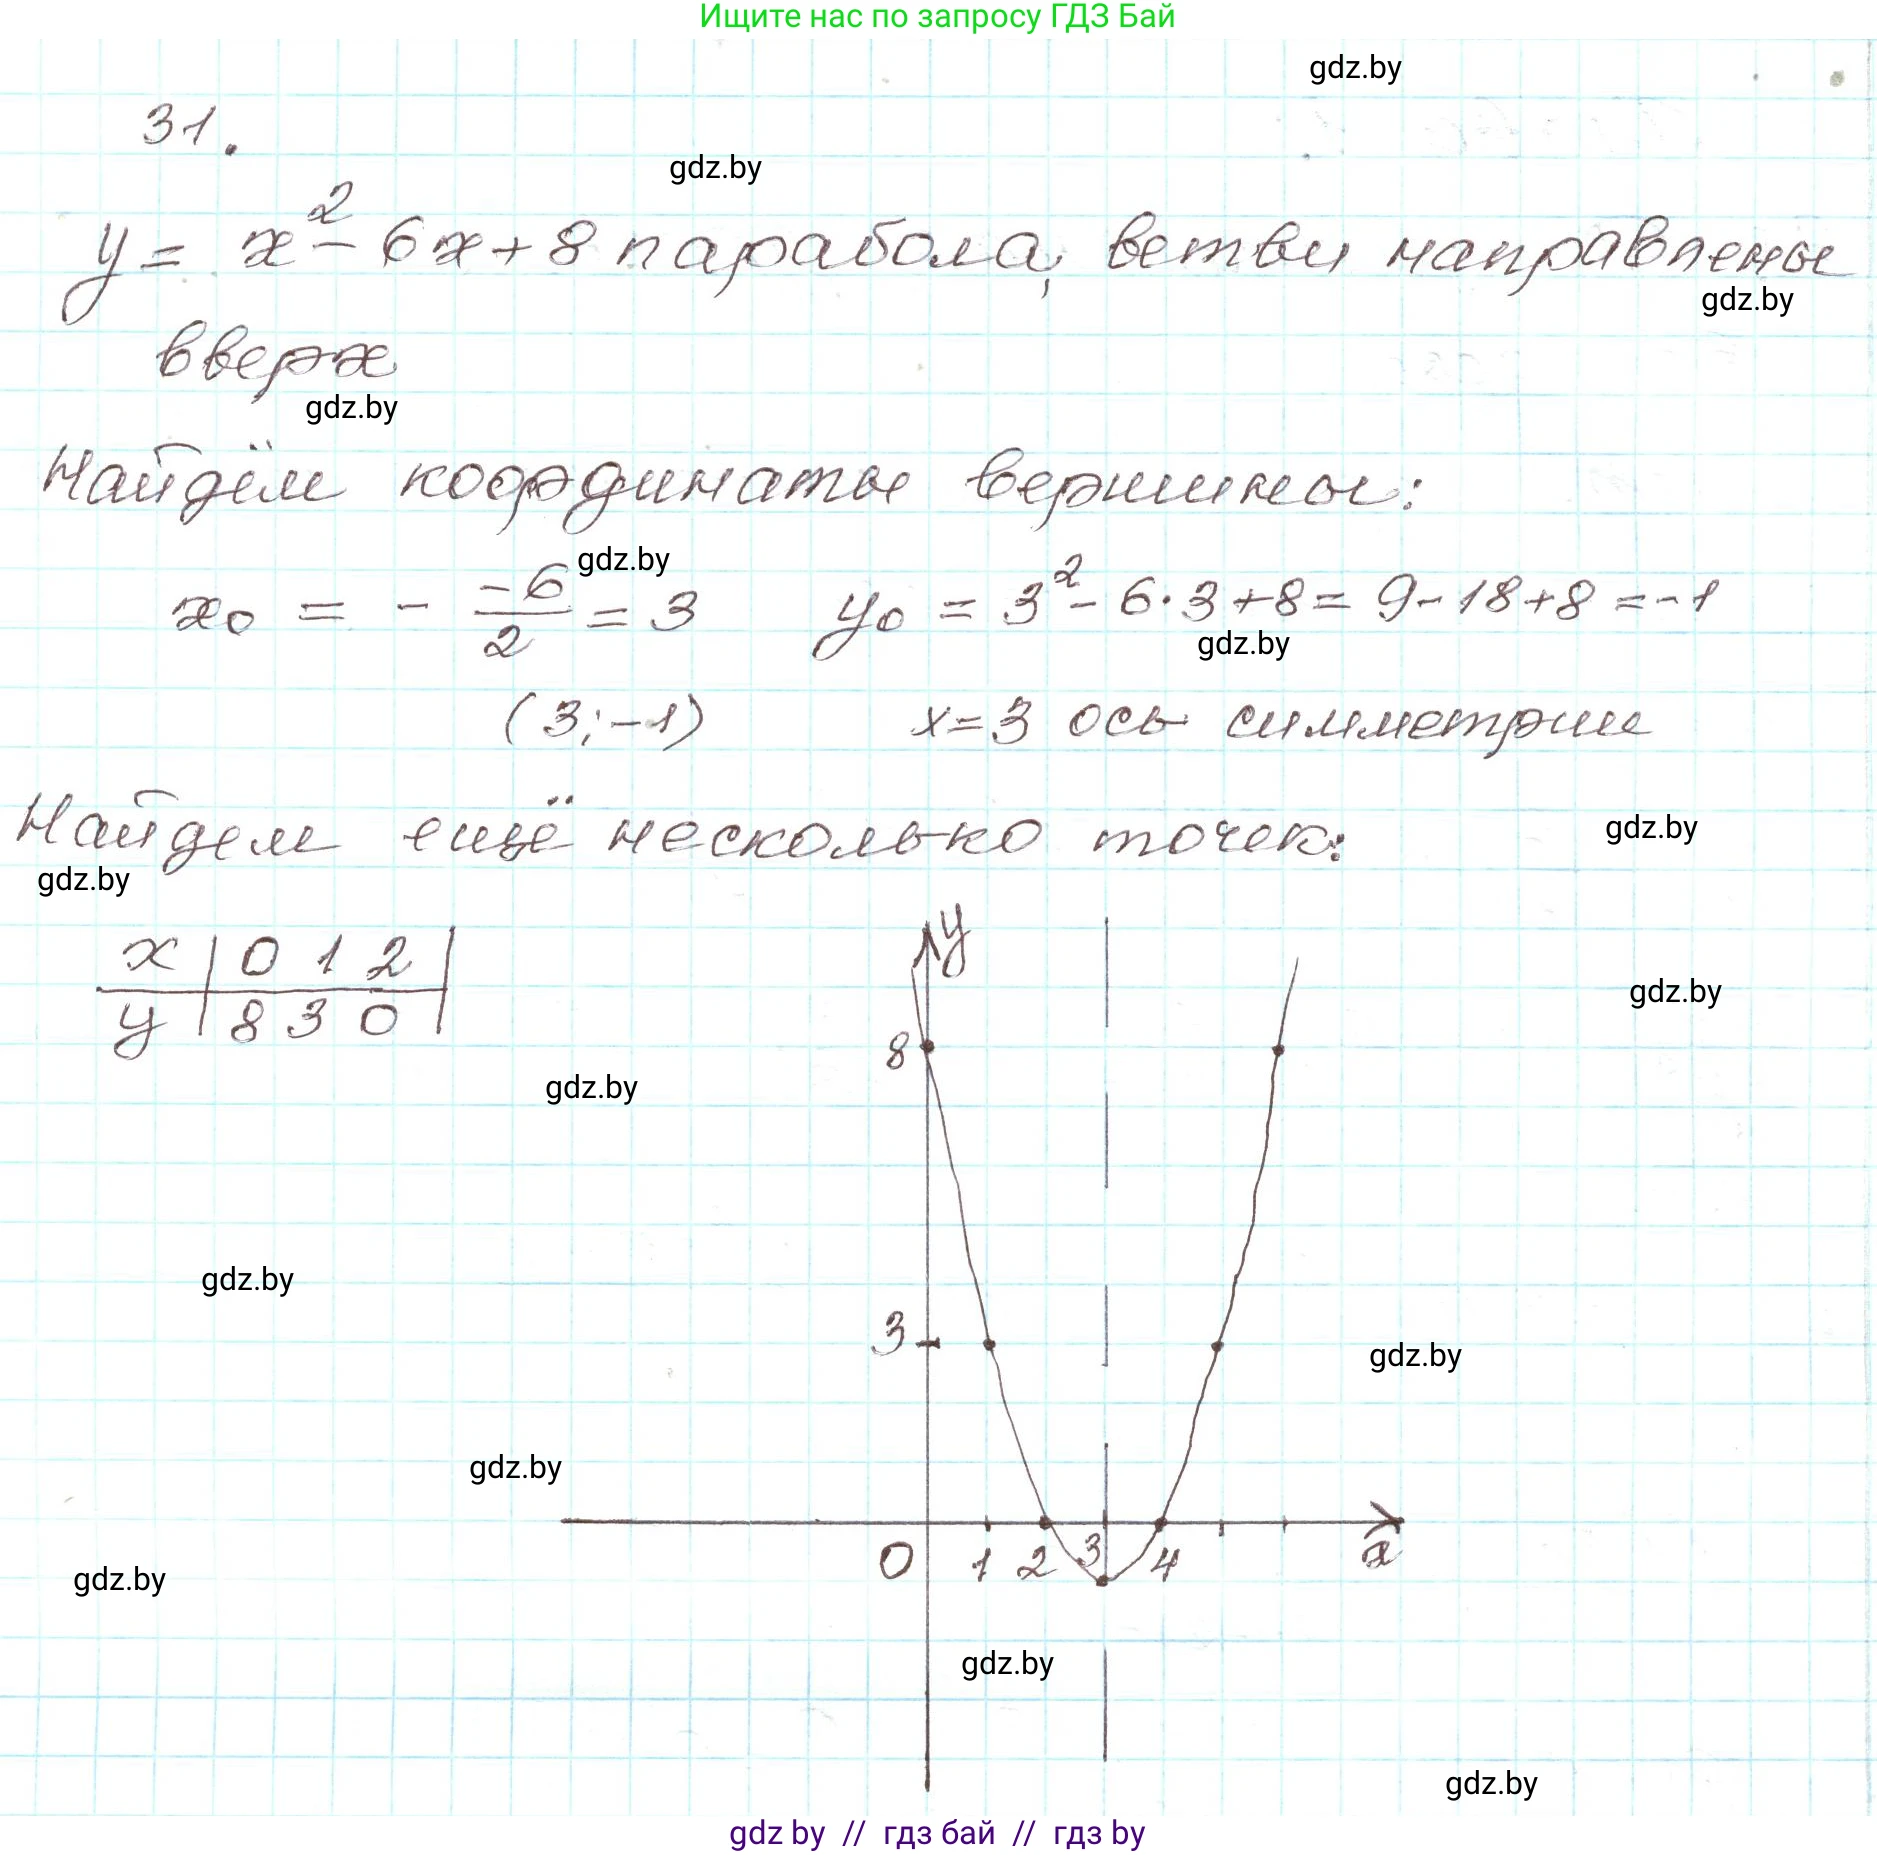 Ищите нас по запросу ГДЗ Бай
gdz.by
31.
gdz.by
y = x² - 6x + 8 парабола, ветви направлены
gdz.by
вверх
gdz.by
Найдём координаты вершины:
gdz.by
x₀ = - -6/2 = 3 y₀ = 3² - 6·3 + 8 = 9 - 18 + 8 = -1
gdz.by
(3; -1) x = 3 ось симметрии
Найдем ещё несколько точек:
gdz.by
gdz.by
x | 0 1 2 |
y | 8 3 0 |
y
gdz.by
8
gdz.by
gdz.by
3
gdz.by
gdz.by
0 1 2 3 4 x
gdz.by
gdz.by
gdz.by
gdz by // гдз бай // гдз by